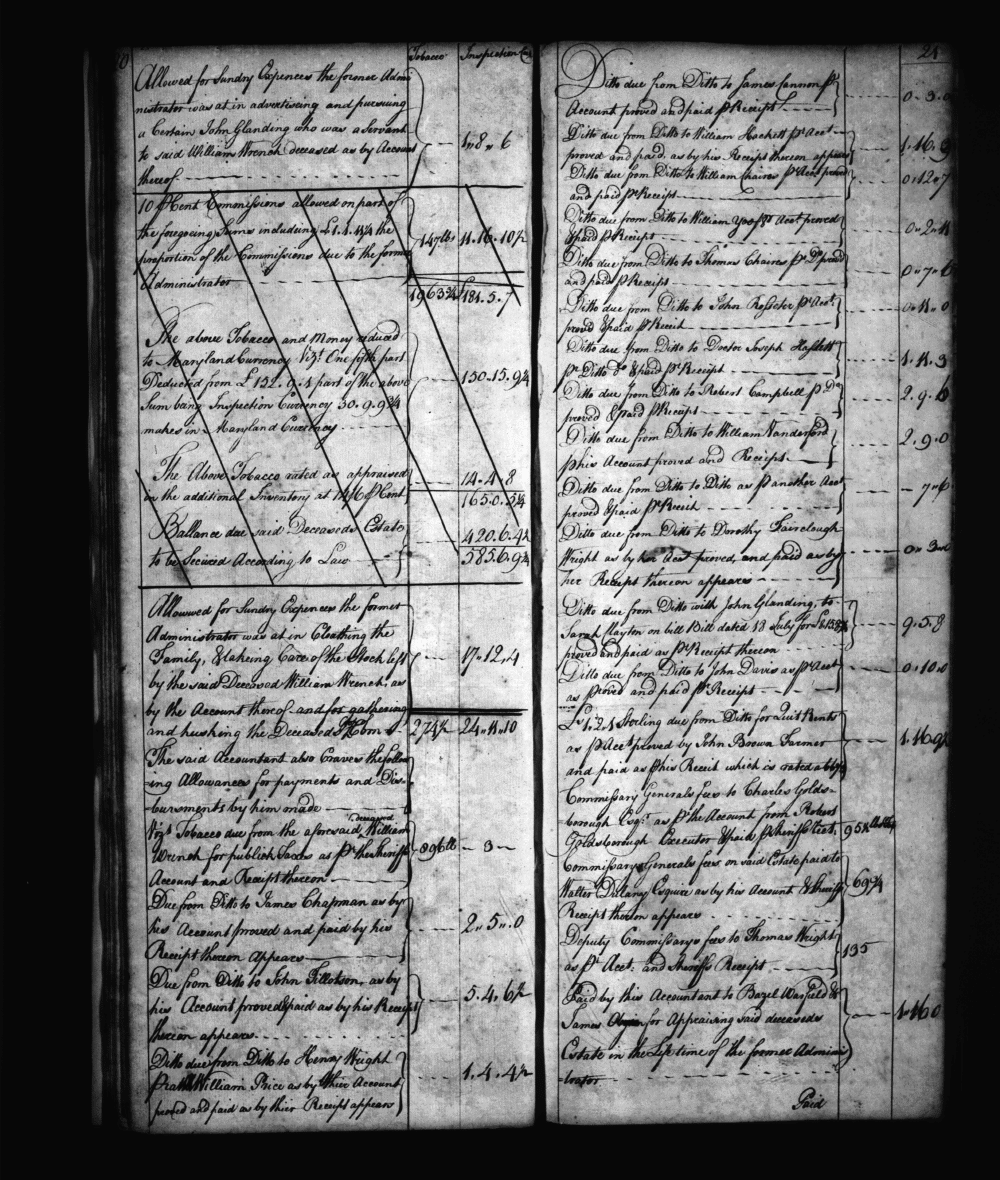 Tobacco Inspection Cur
Allowed for Sundry Expences the former Admi
nistrator was at in advertiseing and pursuing
a Certain John Glanding who was a Servant
to said William Wrench deceased as by Account 1,,8,,6
thereof
10 P Cent Commissions allowed on part of
the foregoing Sums including £1.1.11¼ the 147lb 11.16.10½
proportion of the Commissions due to the former
Administrator
1963¾ £181.5.7
The above Tobacco and Money reduced
to Maryland Currency Vizt. One fifth part
Deducted from £152.9.1 part of the above 150.15.9¾
Sum being Inspection Currency 30.9.9¾
makes in Maryland Currency
The Above Tobacco rated as appraised 14.4.8
in the additional Inventory at 14/6 P Cent 165.0.5¾
Ballance due said Deceaseds Estate 420.6.4
to be Secured According to Law 585.6.9¾
Allowed for Sundry Expences the former
Administrator was at in Cloathing the
Family, & takeing Care of the Stock left 17.12.4
by the said Deceased William Wrench, as
by the Account thereof and for gathering
and husking the Deceased's Corn 274½ 24,,11,,10
The said Accountant also Craves the follow
ing Allowances for payments and Dis=
bursments by him made
Vizt. Tobacco due from the aforesaid deceased William
Wrench for publick Taxes as Pr. the Sheriffs 896lb 3
Account and Receipt thereon
Due from Ditto to James Chapman as by
his Account proved and paid by his 2,,5,,0
Receipt thereon Appears
Due from Ditto to John Tillotson, as by 5.4.6½
his Account proved & paid as by his Receipt
thereon appears
Ditto due from Ditto to Henry Wright
William Price as by thier Account 1.4.4½
proved and paid as by thier Receipt appears
Ditto due from Ditto to James Cannon Pr.
Account proved and paid Pr Receipt 0-3-0
Ditto due from Ditto to William Hackett Pr. Acct. 1.16.9
proved and paid, as by his Receipt thereon appear
Ditto due from Ditto to William Chaires Pr. Acct. proved 0,,12,,7
and paid Pr Receipt
Ditto due from Ditto to William Pr Acct proved
& paid Pr Receipt
Ditto due from Ditto to Thomas Chaires Pr. Do. proved 0,,7,,6
and paid Pr Receipt
Ditto due from Ditto to John Pr Acct. 0,,11,,0
proved & paid Pr Receit
Ditto due from Ditto to Doctor Joseph 1.11.3
Pr Ditto Do & paid Pr Receipt
Ditto due from Ditto to Robert Campbell P Do. 2.9.6
proved & paid Pr Receipt
Ditto due from Ditto to William Vanderford 2.9.0
P his Account proved and Receipt
Ditto due from Ditto to Ditto as Pr another Acct 7,,6
proved & paid Pr Receit
Ditto due from Ditto to Dorothy Fairclough
Wright as by her Acct proved, and paid as by
her Receipt thereon appears
Ditto due from Ditto with John Glanding, to
Sarah Clayton on bill Bill dated 13 July for 9.5.8
proved and paid as Pr Receipt thereon
Ditto due from Ditto to John Davis as Pr Acct 0.10.0
as proved and paid Pr Receipt
£1.2.1 Sterling due from Ditto for Quit Rents
as P Acct. proved by John Brown Farmer
and paid as P his Receit which is rated a
Commissary Generals fees to Charles Golds=
borough Esqr. as Pr the Account from Robert
Goldsborough Executor & paid Pr Sheriffs
Commissary Generals fees on said Estate paid to
Walter Dulany Esquire as by his Account & Sheriffs 69¾
Receipt thereon appears
Deputy Commissarys fees to Thomas Wright 135
as Pr Acct. and Sheriffs Receipt
Paid by this Accountant to Bazel Warfield &
James for Appraising said deceaseds 1.16.0
Estate in the Life time of the former Admini
=trator
Paid